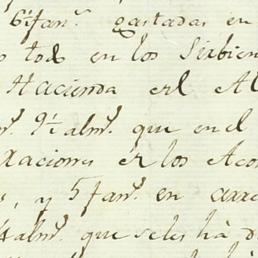 6 fan.s gastadas en
todo en los Sirvien
Hacienda en el Al
9½ alm.s que en el
raciones en los Aco
y 5 fan.s en
4 alm.s que se les ha d